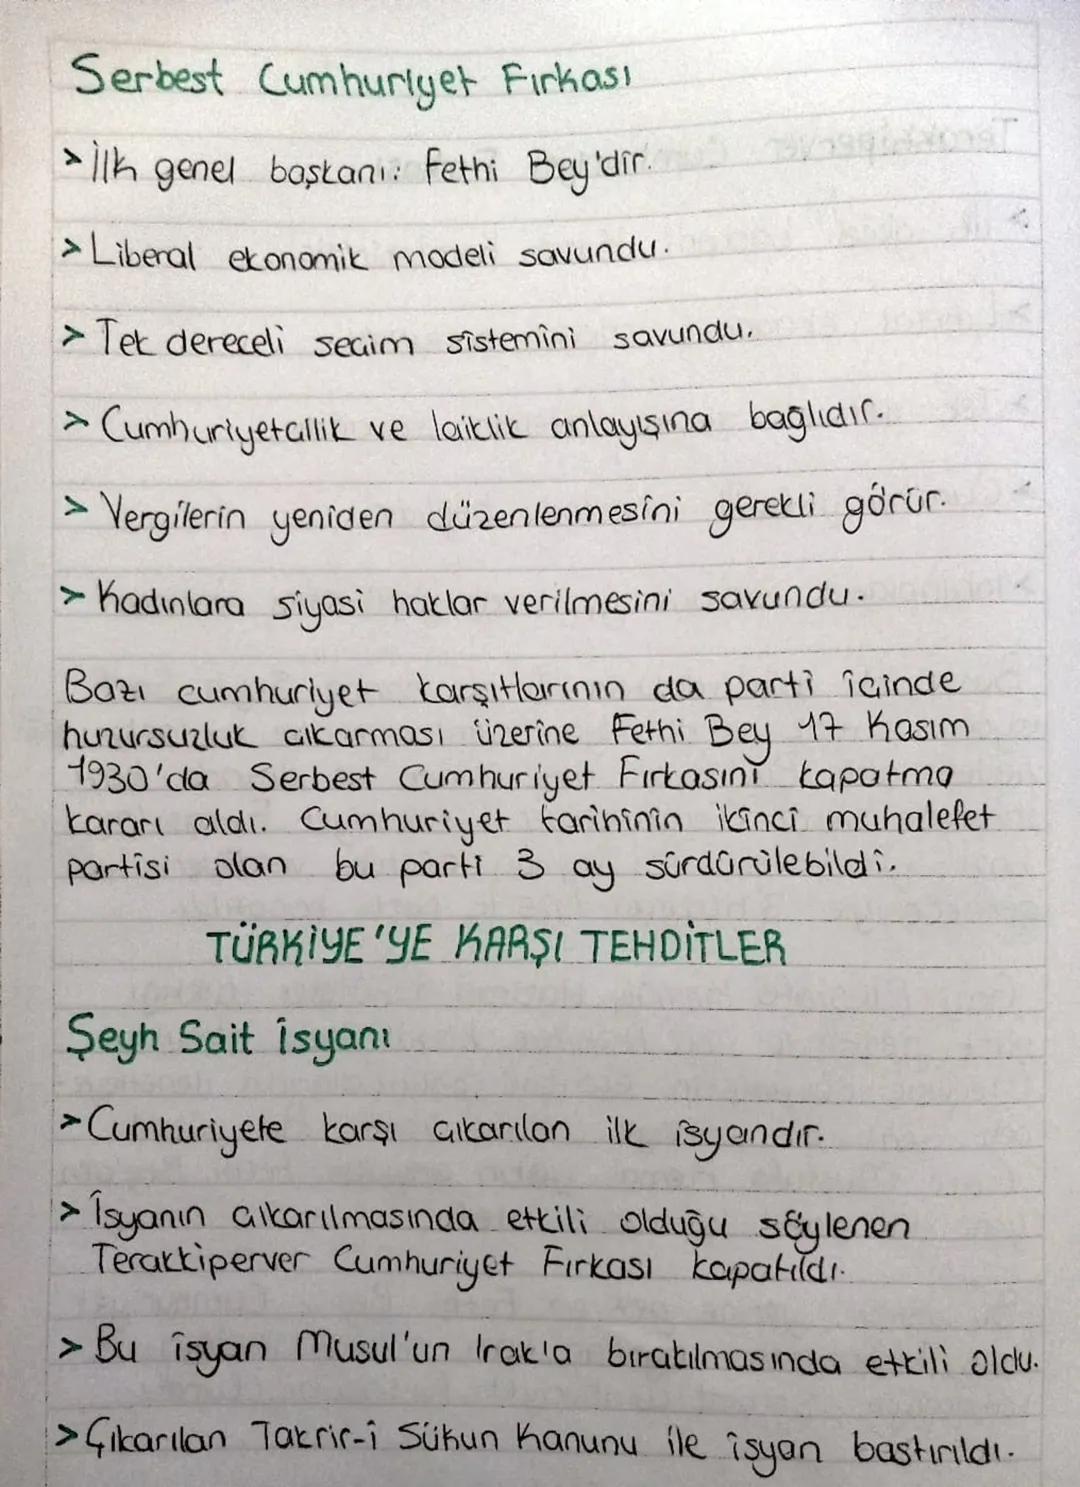 Serbest Cumhuriyet Fırkası
> İlk genel başkanı: Fethi Bey'dir.
> Liberal ekonomik modeli savundu.
> Tek dereceli seçim sistemini savundu.
> Cumhuriyetçilik ve laiklik anlayışına bağlıdır.
> Vergilerin yeniden düzenlenmesini gerekli görür.
> Kadınlara siyasi haklar verilmesini savundu.
Bazı cumhuriyet karşıtlarının da parti içinde
huzursuzluk çıkarması üzerine Fethi Bey 17 Kasım
1930'da Serbest Cumhuriyet Fırkasını kapatma
kararı aldı. Cumhuriyet tarihinin ikinci muhalefet
partisi olan bu parti 3 ay sürdürülebildi.
TÜRKİYE'YE KARŞI TEHDİTLER
Şeyh Sait İsyanı
> Cumhuriyete karşı çıkarılan ilk isyandır.
> İsyanın çıkarılmasında etkili olduğu söylenen
Terakkiperver Cumhuriyet Fırkası kapatıldı.
> Bu isyan Musul'un Irak'a bırakılmasında etkili oldu.
> Çıkarılan Takrir-i Sükun Kanunu ile isyan bastırıldı.